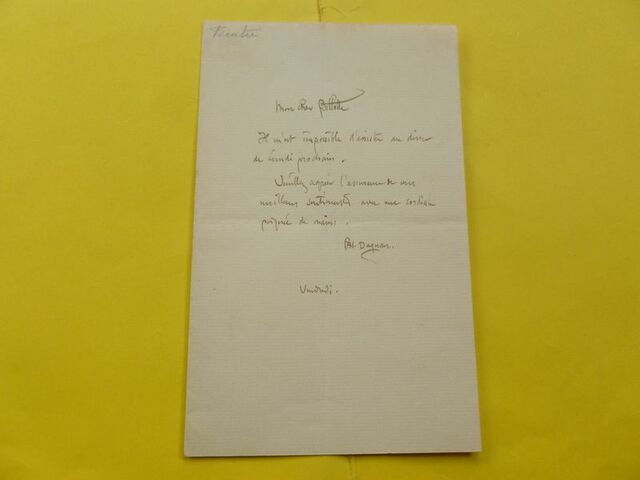 Mon cher Billotte
Il m'est impossible d'assister au diner
de Lundi prochain.
Veuillez agréer l'assurance de mes
meilleurs sentiments avec une cordiale
poignée de mains.
Dagnan.
Vendredi.